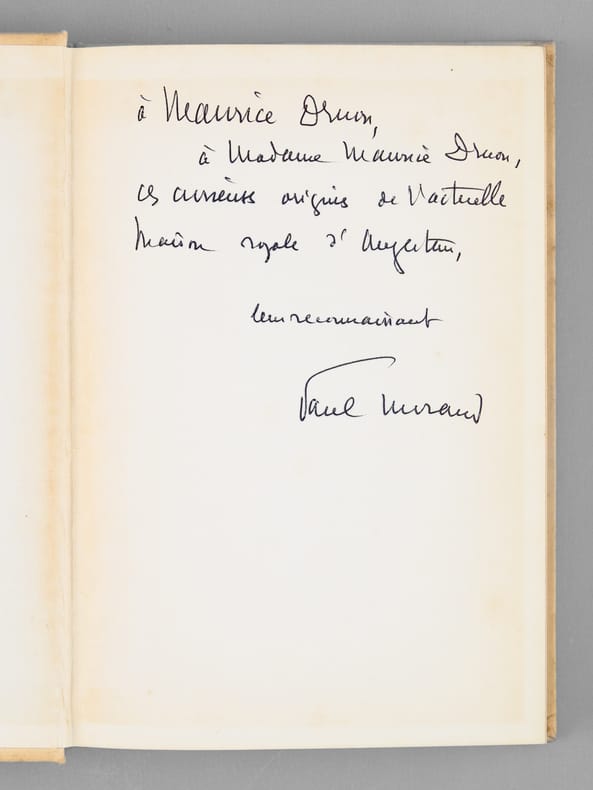 à Maurice Druon,
à Madame Maurice Druon,
ces curieuses origines de l'actuelle
Maison royale d'Angleterre,
leur reconnaissant
Paul Morand